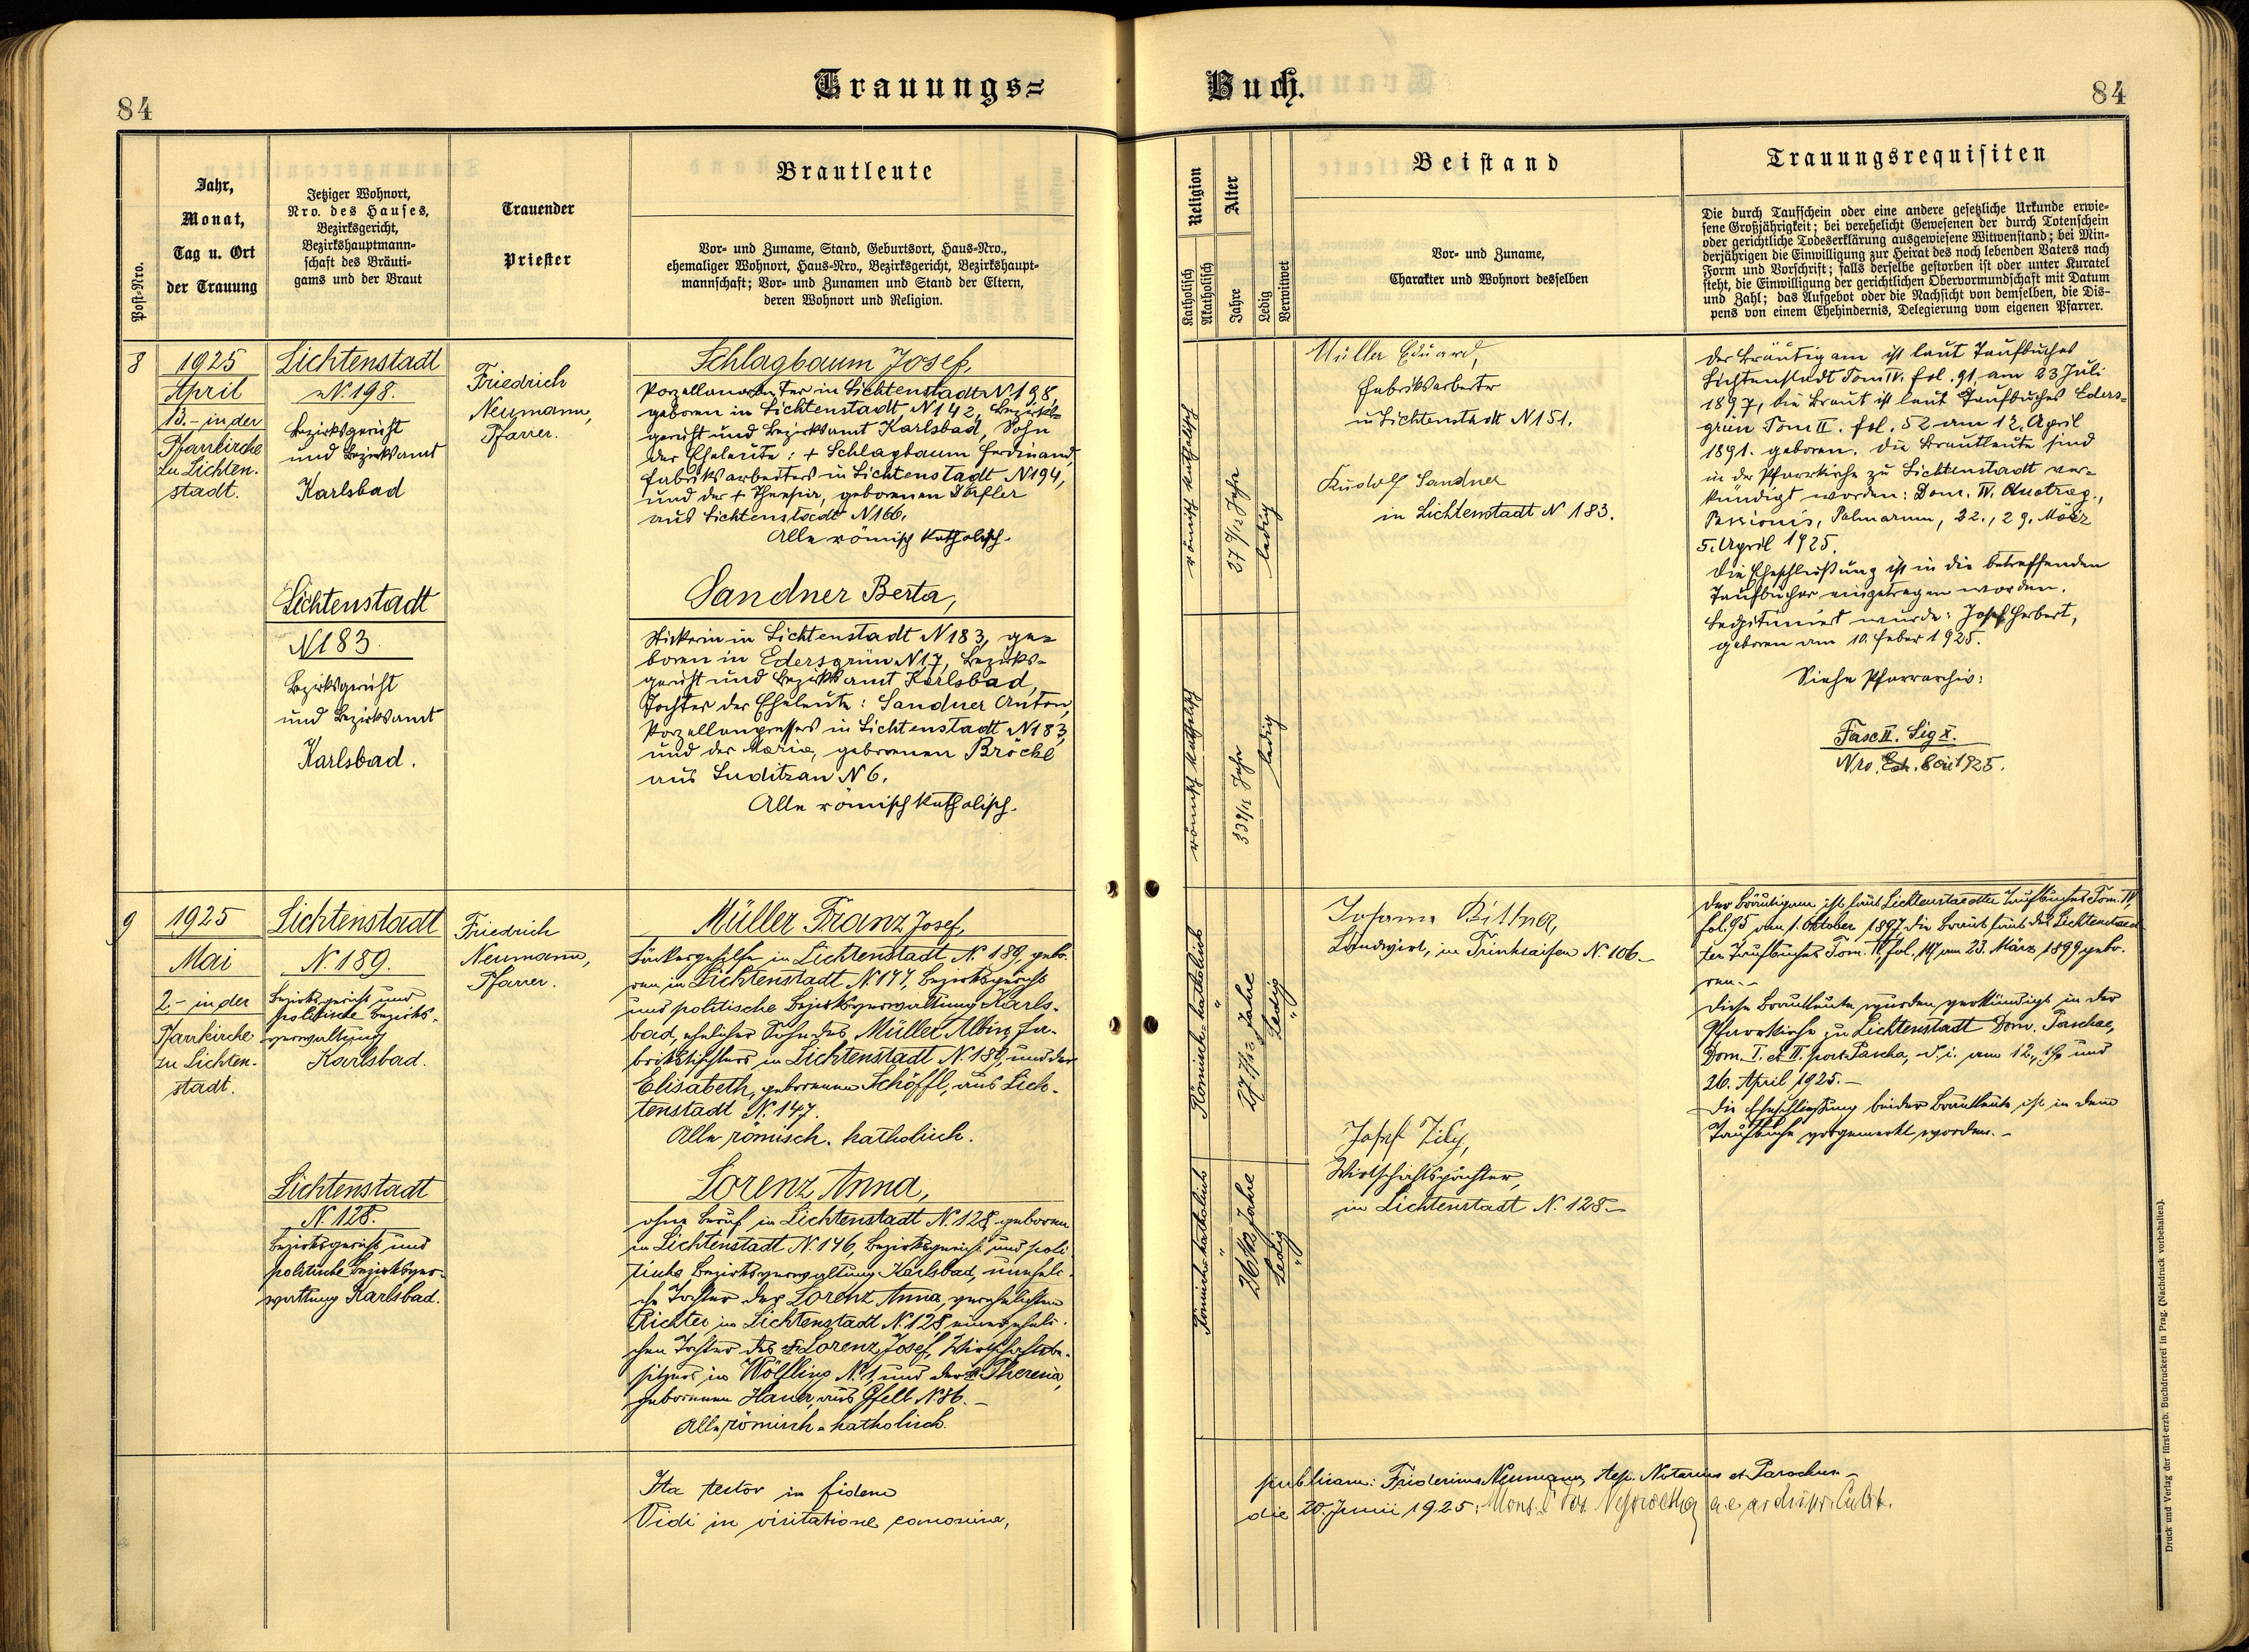 Trauungs=
Buch.
84
84
Post-Nro.
Jahr,
Monat,
Tag u. Ort
der Trauung
Jetziger Wohnort,
Nro. des Hauses,
Bezirksgericht,
Bezirkshauptmann-
schaft des Bräuti-
gams und der Braut
Trauender
Priester
Brautleute
Vor- und Zuname, Stand, Geburtsort, Haus-Nro.,
ehemaliger Wohnort, Haus-Nro., Bezirksgericht, Bezirkshaupt-
mannschaft; Vor- und Zunamen und Stand der Eltern,
deren Wohnort und Religion.
Religion
Katholisch
Akatholisch
Alter
Jahre
Ledig
Verwitwet
Beistand
Vor- und Zuname,
Charakter und Wohnort desselben
Trauungsrequisiten
Die durch Taufschein oder eine andere gesetzliche Urkunde erwie-
sene Großjährigkeit; bei verehelicht Gewesenen der durch Totenschein
oder gerichtliche Todeserklärung ausgewiesene Witwenstand; bei Min-
derjährigen die Einwilligung zur Heirat des noch lebenden Vaters nach
Form und Vorschrift; falls derselbe gestorben ist oder unter Kuratel
steht, die Einwilligung der gerichtlichen Obervormundschaft mit Datum
und Zahl; das Aufgebot oder die Nachsicht von demselben, die Dis-
pens von einem Ehehindernis, Delegierung vom eigenen Pfarrer.
8
1925
April
13.- in der
Pfarrkirche
zu Lichten-
stadt.
Lichtenstadt
N. 198.
Bezirksgericht
und Bezirksamt
Karlsbad
Friedrich
Neumann,
Pfarrer.
Schlagbaum Josef,
Porzellanarbeiter in Lichtenstadt N. 198,
geboren in Lichtenstadt N 142, Bezirks-
gericht und Bezirksamt Karlsbad, Sohn
der Eheleute: + Schlagbaum Ferdinand,
Fabriksarbeiters in Lichtenstadt N 194,
und der + Theresia, geborenen
aus Lichtenstadt N 166.
Alle römisch katholisch.
Lichtenstadt
N 183.
Bezirksgericht
und Bezirksamt
Karlsbad.
Sandner Berta,
Stickerin in Lichtenstadt N 183, ge-
boren in Edersgrün N 17, Bezirks-
gericht und Bezirksamt Karlsbad,
Tochter der Eheleute: Sandner Anton,
Porzellanpressers in Lichtenstadt N 183,
und der Maria, geborenen Bröckl
aus Luditzau N 6.
Alle römisch katholisch.
römisch katholisch
27 9/12 Jahr
ledig
römisch katholisch
Jahr
ledig
Müller Eduard,
Fabriksarbeiter
in Lichtenstadt N 151.
Rudolf Sandner
in Lichtenstadt N 183.
Der Bräutigam ist laut Taufbuches
Lichtenstadt Tom IV. fol. 91 am 23 Juli
1897, die Braut ist laut Taufbuches Eders-
grün Tom II. fol. 52 am 12. April
1891. geboren. Die Brautleute sind
in der Pfarrkirche zu Lichtenstadt ver-
kündigt worden: Dom. IV. Quadrag.,
Passionis, Palmarum, 22., 29. März
5. April 1925.
Die Eheschließung ist in die betreffenden
Taufbücher eingetragen worden.
Legitimiert wurde: Josef Herbert,
geboren am 10. Feber 1925.
Siehe Pfarrarchiv:
Fasc II. Sig X.
Nro. 1925.
9
1925
Mai
2.- in der
Pfarrkirche
zu Lichten-
stadt.
Lichtenstadt
N. 189.
Bezirksgericht und
politische Bezirks-
verwaltung
Karlsbad.
Friedrich
Neumann,
Pfarrer.
Müller Franz Josef,
Bäckergehilfe in Lichtenstadt N. 189, gebo-
ren in Lichtenstadt N. 147, Bezirksgericht
und politische Bezirksverwaltung Karls-
bad, ehelicher Sohn des Müller Albin, Fa-
brikstischlers in Lichtenstadt N. 189, und der
Elisabeth, geborenen Schöffl, aus Lich-
tenstadt N. 147.
Alle römisch-katholisch.
Lichtenstadt
N. 128.
Bezirksgericht und
politische Bezirksver-
waltung Karlsbad.
Lorenz Anna,
ohne Beruf in Lichtenstadt N. 128, geboren
in Lichtenstadt N. 146, Bezirksgericht und poli-
tische Bezirksverwaltung Karlsbad, uneheli-
che Tochter der Lorenz Anna, verehelichten
Richter, in Lichtenstadt N. 128, einer eheli-
chen Tochter des + Lorenz Josef, Wirtschaftsbe-
sitzers in Wölfling N. 1, und der + Theresia,
geborenen Hauer, aus Gfell N. 36.-
Alle, römisch-katholisch.
Römisch-katholisch
27 7/12 Jahre
Ledig
Römisch-katholisch
26 Jahre
Ledig
Johann Bittner,
Landwirt, in Trinkseifen N. 106.-
Josef
Wirtschaftspächter,
in Lichtenstadt N. 128.-
Der Bräutigam ist laut Lichtenstadter Taufbuches Tom. IV.
fol. 95 am 1. Oktober 1897, die Braut laut des Lichtenstad-
ter Taufbuches Tom. IV. fol. am 23. März 1899 gebo-
ren.-
Diese Brautleute wurden verkündigt in der
Pfarrkirche zu Lichtenstadt Dom. Paschae,
Dom. I. et II. post Pascha, d. i. am 12., 19. und
26. April 1925.-
Die Eheschließung beider Brautleute ist in dem
Taufbuche vorgemerkt worden.-
Ita testor in fidem
publicam: Fridericus Neumann, Aep. Notarius et Parochus.-
Vidi in visitatione canonica,
die 20. Junii 1925:
Druck und Verlag der fürst-erzb. Buchdruckerei in Prag. (Nachdruck vorbehalten).